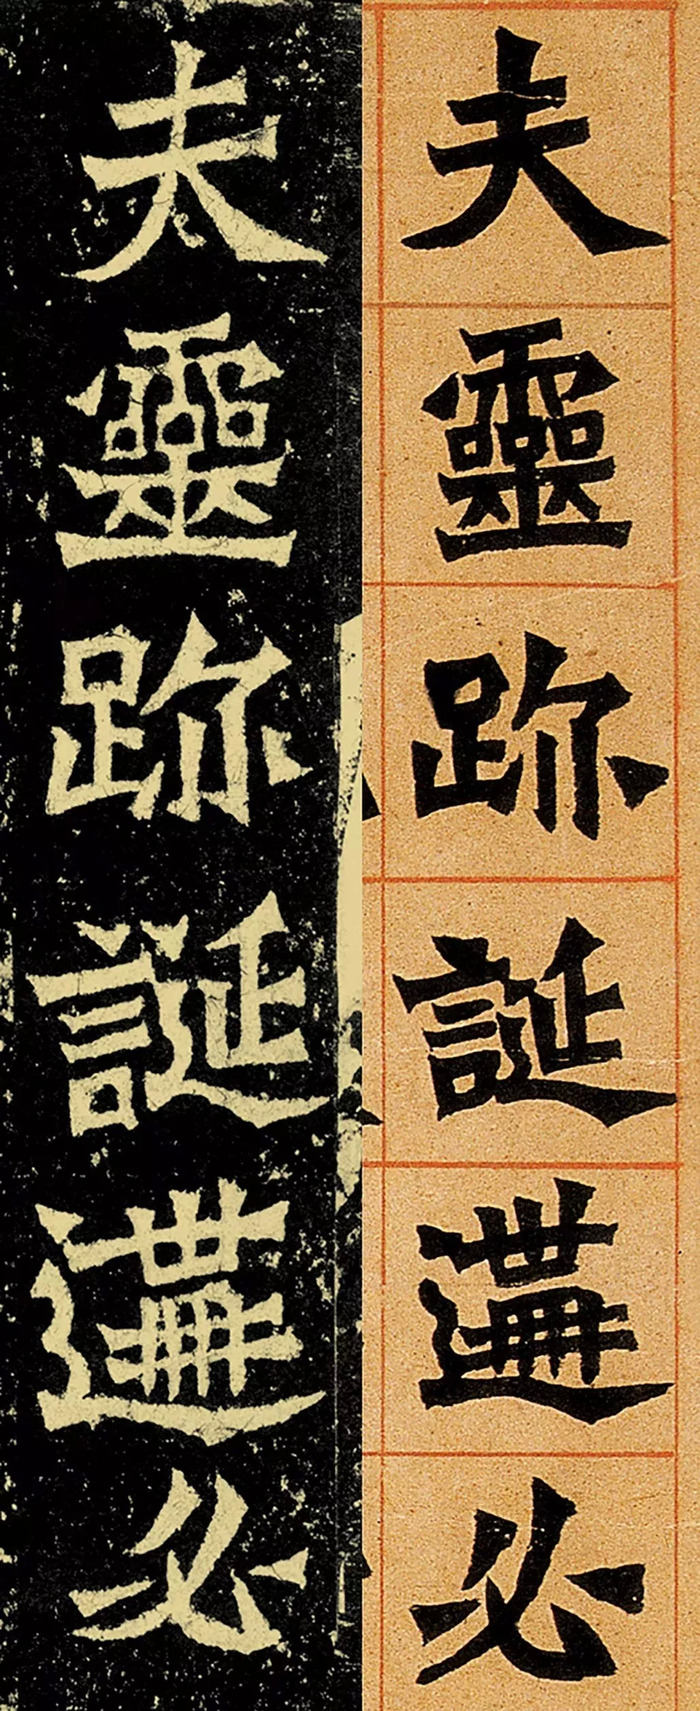 夫靈跡誕遘必
夫靈跡誕遘必